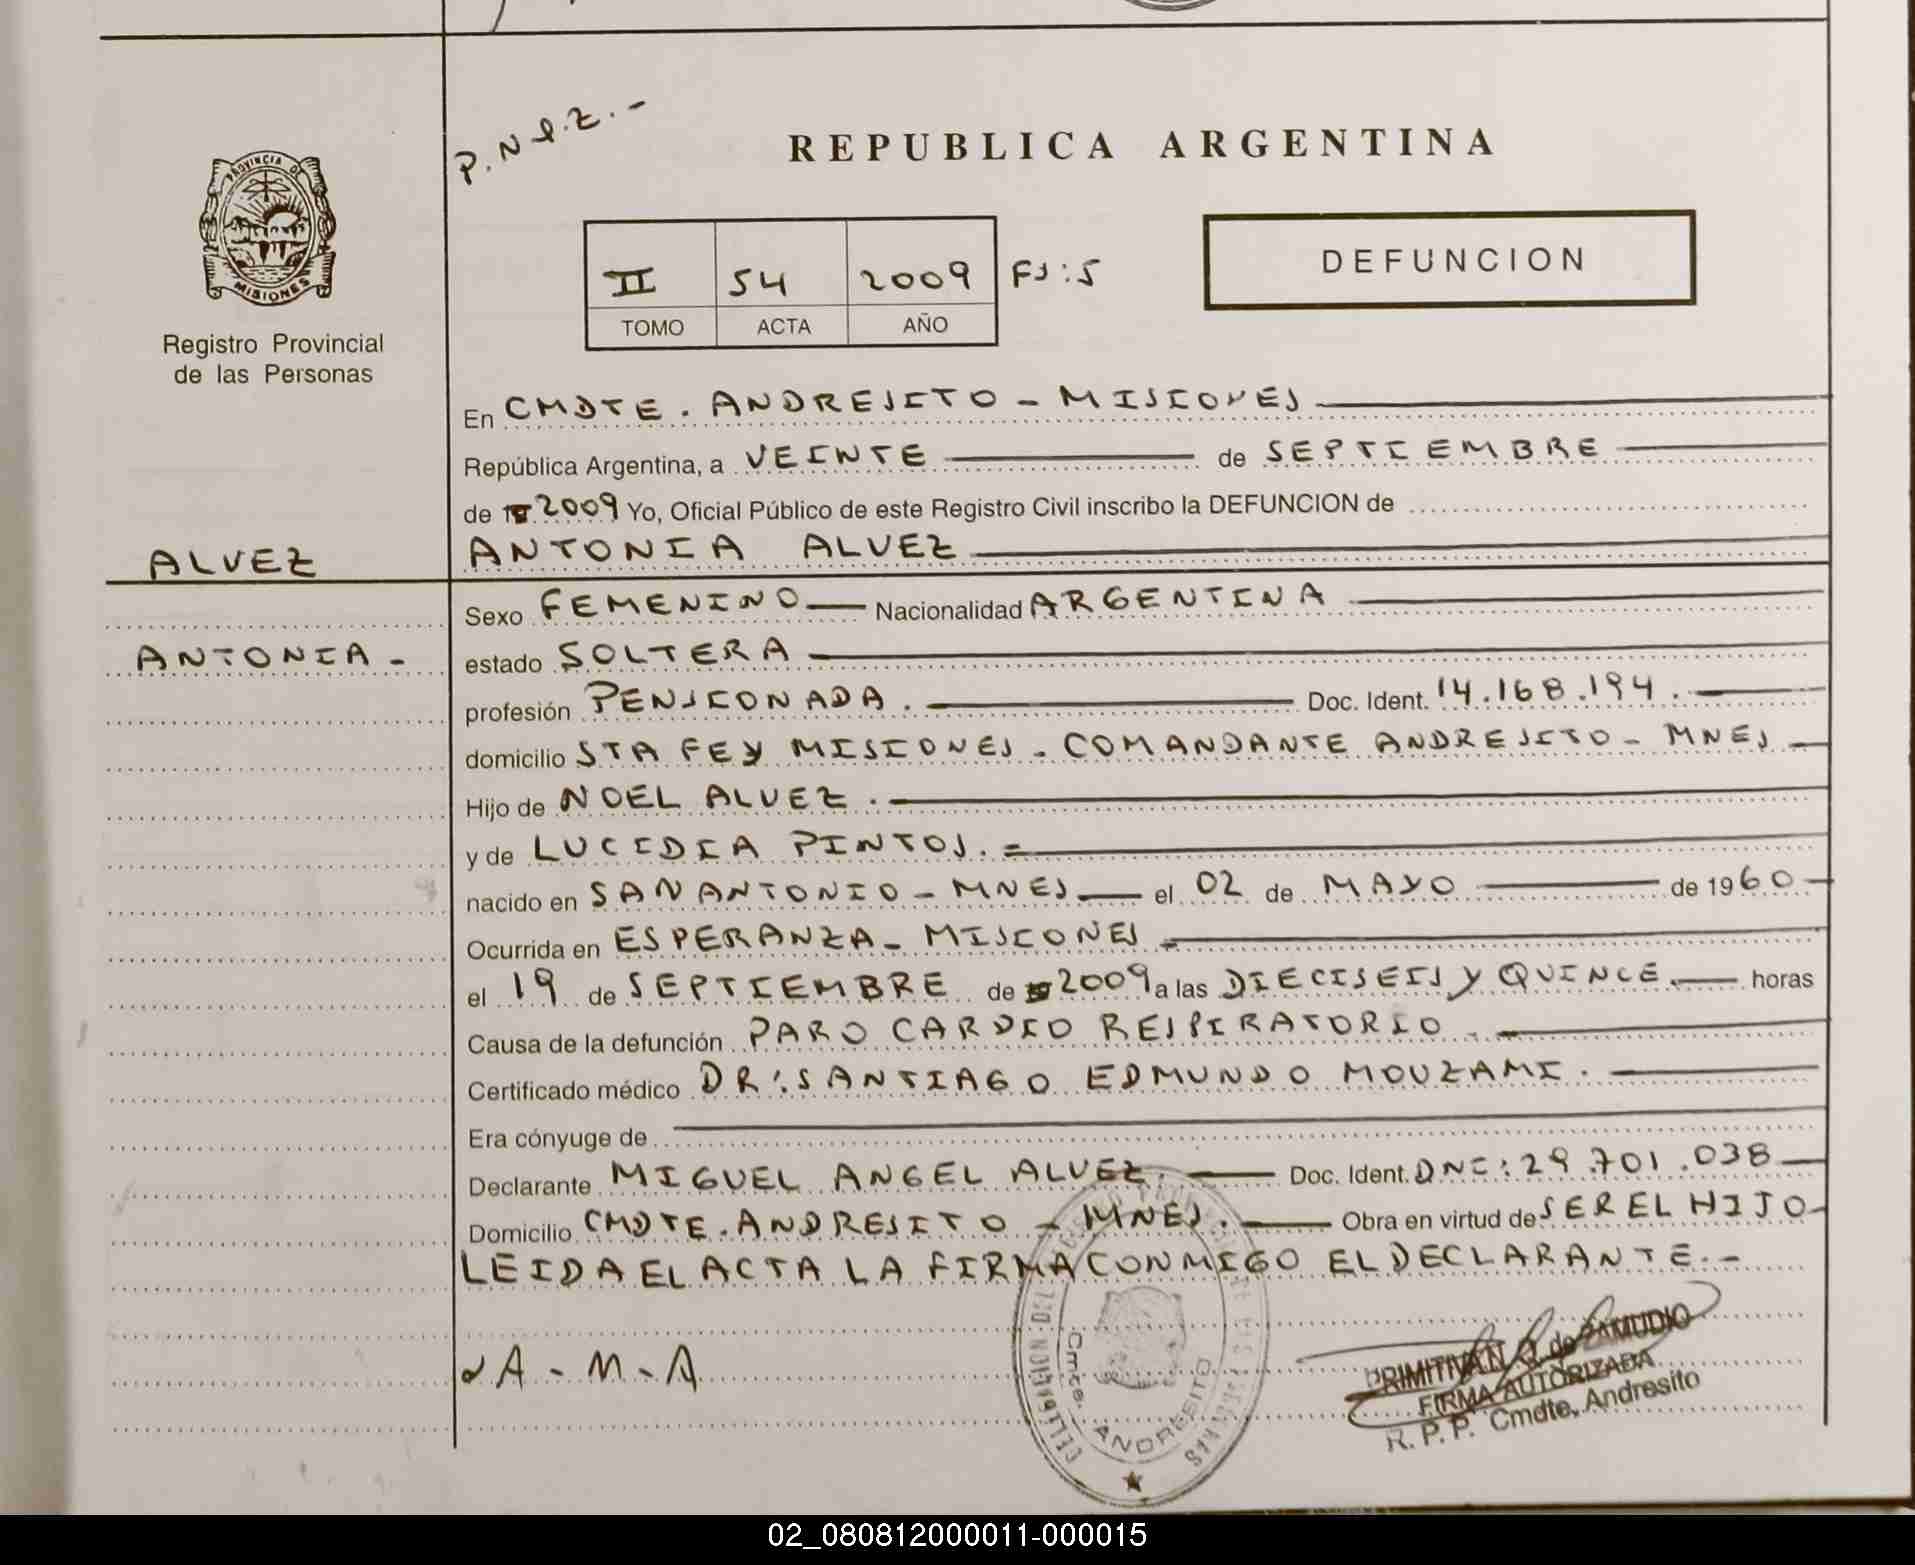 P.N.I.Z.-
REPUBLICA ARGENTINA
PROVINCIA DE
MISIONES
Registro Provincial
de las Personas
II 54 2009 FS:5
TOMO ACTA AÑO
DEFUNCION
En CMDTE. ANDRESITO - MISIONES
República Argentina, a VEINTE de SEPTIEMBRE
de 2009 Yo, Oficial Público de este Registro Civil inscribo la DEFUNCION de
ALVEZ ANTONIA ALVEZ
Sexo FEMENINO Nacionalidad ARGENTINA
ANTONIA - estado SOLTERA
profesión PENSIONADA. Doc. Ident. 14.168.194.
domicilio STA FE y MISIONES - COMANDANTE ANDRESITO - MNES
Hijo de NOEL ALVEZ.
y de LUCIDIA PINTOS.
nacido en SAN ANTONIO - MNES el 02 de MAYO de 1960
Ocurrida en ESPERANZA - MISIONES
el 19 de SEPTIEMBRE de 2009 a las DIECISEIS y QUINCE horas
Causa de la defunción PARO CARDIO RESPIRATORIO.
Certificado médico DR: SANTIAGO EDMUNDO MOUZAMI.
Era cónyuge de
Declarante MIGUEL ANGEL ALVEZ. Doc. Ident. DNI: 29.701.038
Domicilio CMDTE. ANDRESITO - MNES. Obra en virtud de SER EL HIJO
LEIDA EL ACTA LA FIRMA CONMIGO EL DECLARANTE.-
A-M-A
Cmte. ANDRESITO
PRIMITIVA N. Q. de ZAMUDIO
FIRMA AUTORIZADA
R. P. P. Cmdte. Andresito
02_080812000011-000015